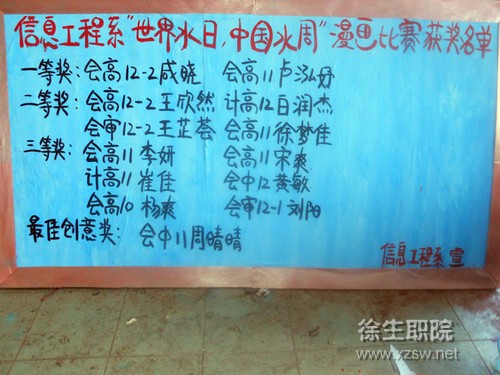 信息工程系"世界水日,中国水周"漫画比赛获奖名单
一等奖:会高12-2咸晓 会高11卢泓妤
二等奖:会高12-2王欣然 计高12吕润杰
会审12-2王芷荟 会高11徐梦佳
三等奖:会高11 李妍 会高11宋爽
计高11 崔佳 会中12黄敏
会高10 杨爽 会审12-1刘阳
最佳创意奖: 会中11周晴晴
信息工程系 宣
徐生职院
www.xzsw.net